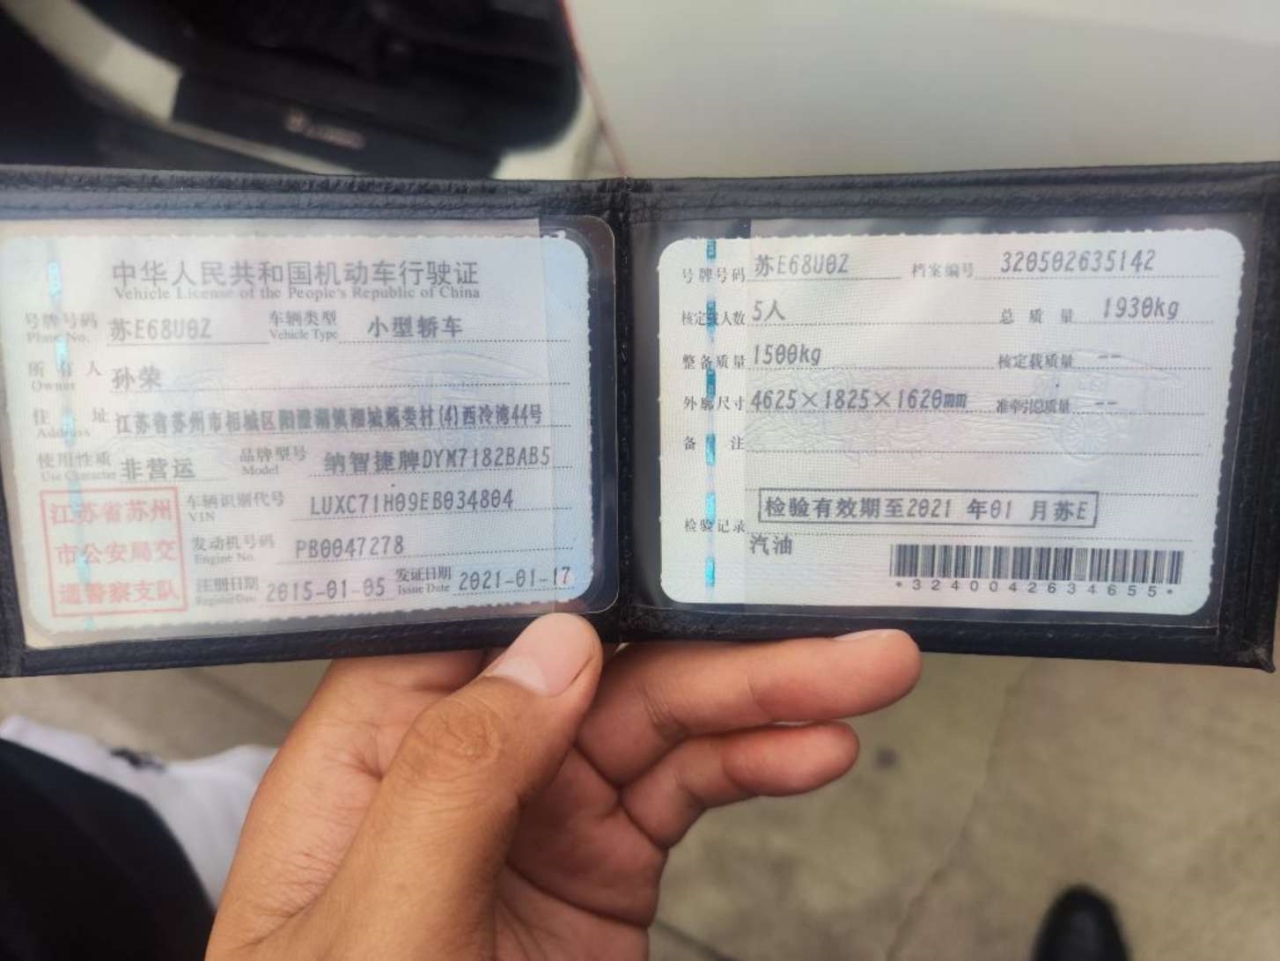 中华人民共和国机动车行驶证
Vehicle License of the People's Republic of China
号牌号码 苏E68U0Z 车辆类型 小型轿车
Plate No. Vehicle Type
所有人 孙荣
Owner
住址 江苏省苏州市相城区阳澄湖镇湘城戴娄村(4)西冷湾44号
Address
使用性质 非营运 品牌型号 纳智捷牌DYM7182BAB5
Use Character Model
江苏省苏州
市公安局交
通警察支队
车辆识别代号 LUXC71H09EB034804
VIN
发动机号码 PB0047278
Engine No.
注册日期 2015-01-05 发证日期 2021-01-17
Register Date Issue Date
号牌号码 苏E68U0Z 档案编号 320502635142
核定载人数 5人 总质量 1930kg
整备质量 1500kg 核定载质量 --
外廓尺寸 4625×1825×1620mm 准牵引总质量 --
备注
检验记录 检验有效期至2021 年01 月苏E
汽油
*3240042634655*